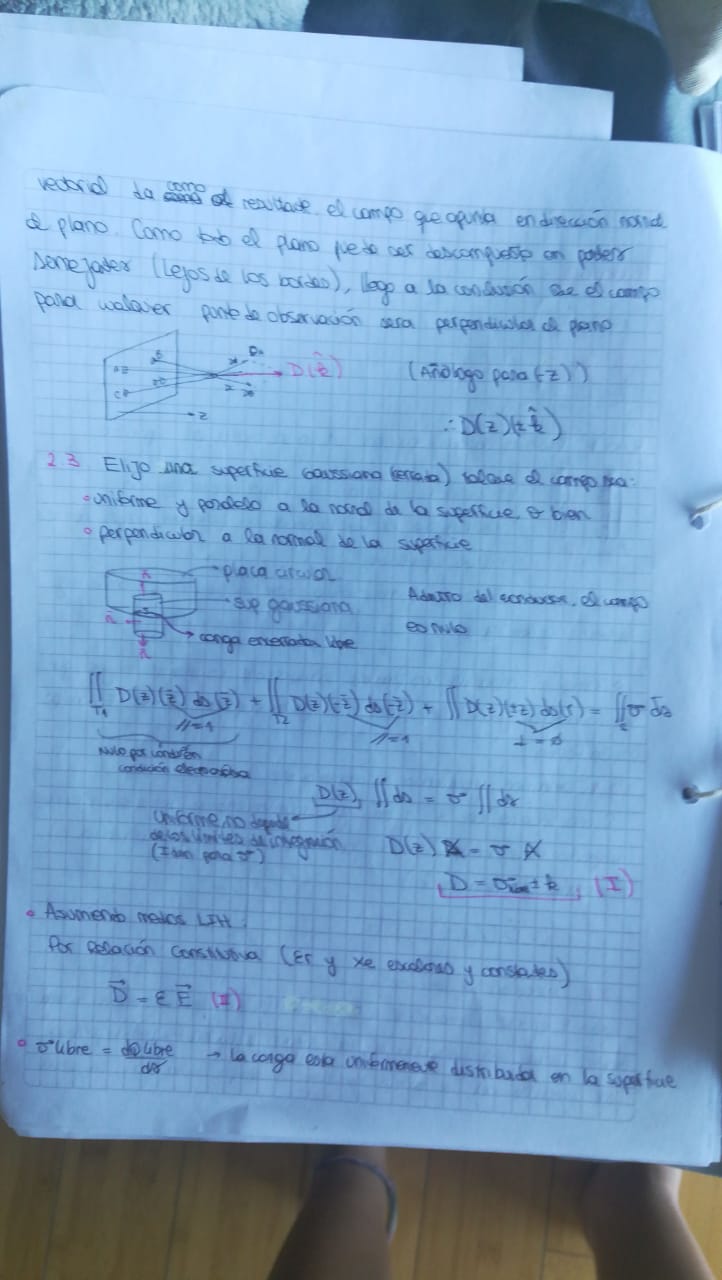 vectorial da como resultado el campo que apunta en dirección normal
al plano. Como todo el plano puede ser descompuesto en
semejantes (Lejos de los bordes), llego a la conclusión que el campo
para cualquier punto de observación sera perpendicular al plano
D(ẑ) (Análogo para (-z))
z
∴ D(z)(± k̂)
2.3 Elijo una superficie Gaussiana (cerrada) tal que el campo sea:
• uniforme y paralelo a la normal de la superficie, o bien
• perpendicular a la normal de la superficie
placa
sup gaussiana Adentro del conductor, el campo
es nulo
carga encerrada libre
∬ D(z)(z̄) ds(z̄) + ∬ D(z)(-z) ds(-z) + ∬ D(z)(±z) ds(r) = ∬ σ ds
T1 T2
//=1 //=1 ⊥=0
Nulo por
condición electrostática
D(z) ∬ ds = σ ∬ ds
Uniforme, no depende
de los limites de integración
(Idem para σ)
D(z) A = σ A
D = σ ± k̂ (I)
• Asumiendo medios LIH
Por relación constitutiva (Er y Xe escalares y constantes)
D⃗ = ε E⃗ (II)
• σ libre = dQ libre / ds → la carga esta uniformemente distribuida en la superficie